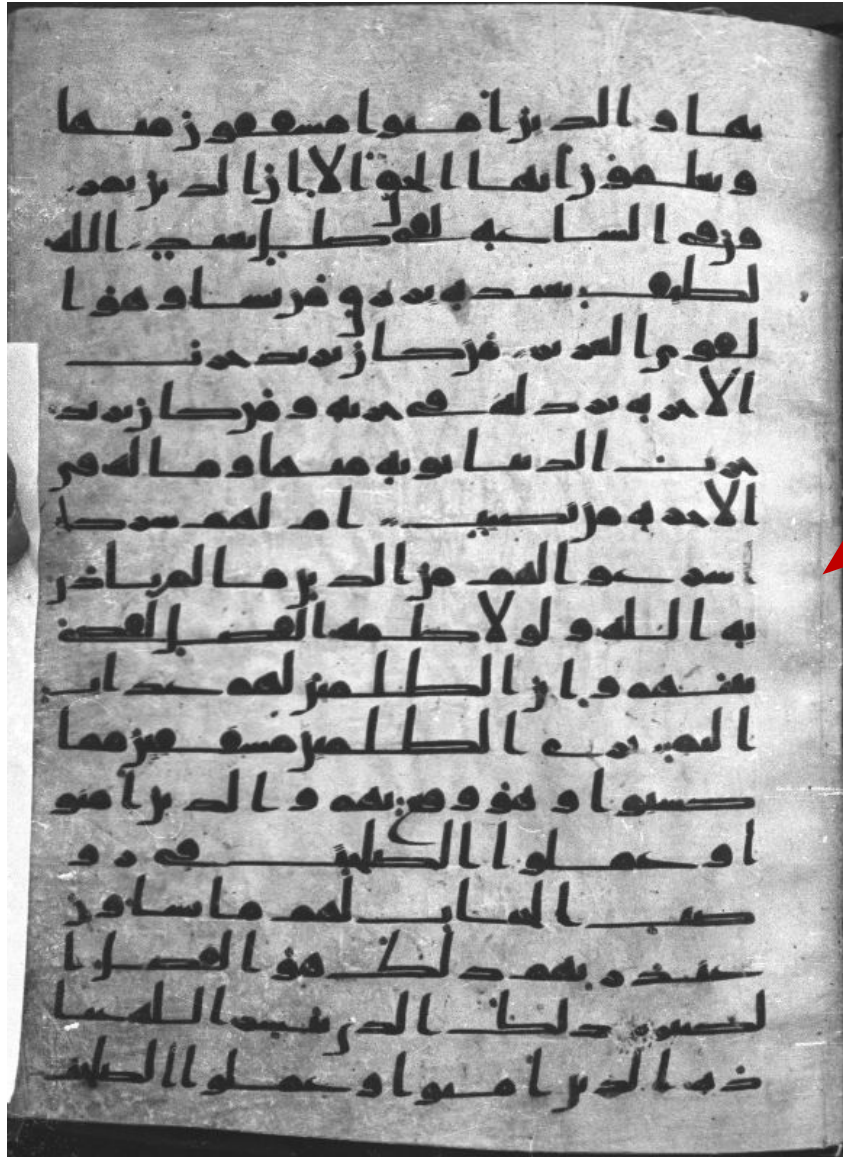 بها والذين امنوا مشفقون منها
ويعلمون انها الحق الا ان الذين يما
رون في الساعة لفي ضلل بعيد الله
لطيف بعباده يرزق من يشا وهو ا
لقوي العزيز من كان يريد حرث
الاخرة نزد له في حرثه ومن كان يريد
حرث الدنيا نوته منها وما له في
الاخرة من نصيب ام لهم شرك
ا شرعوا لهم من الدين ما لم ياذن
به الله ولولا كلمة الفصل لقضي
بينهم وان الظلمين لهم عذاب
اليم ترى الظلمين مشفقين مما
كسبوا وهو وقع بهم والذين امنو
ا وعملوا الصلحت في رو
ضت الجنات لهم ما يشاون
عند ربهم ذلك هو الفضل ا
لكبير ذلك الذي يبشر الله عبا
ده الذين امنوا وعملوا الصلحت